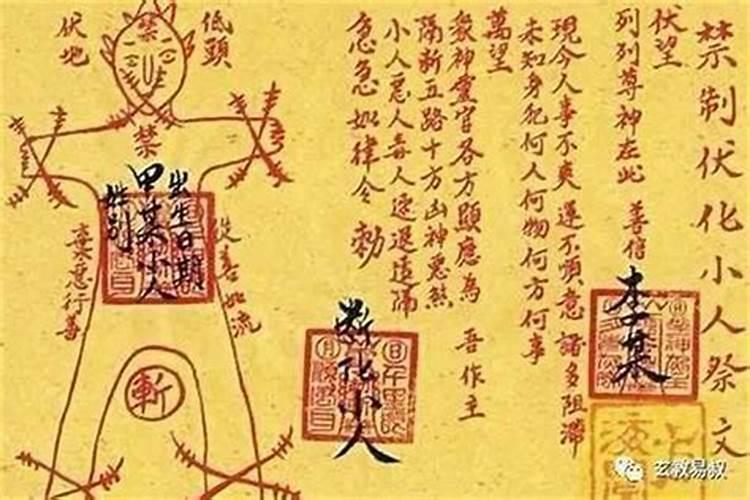 禁制伏化小人祭文
伏望
列列尊神在此 善信
李某
現今人事不爽運不順意諸多阻滯
未知身犯何人何物何方何事
萬望
眾神靈官各方顯應為 吾作主
隔斬五路十方凶神惡煞
小人惡人毒人速退遠隔
急急如律令 勅
斷化小人
低頭
伏地
禁
禁
出生日期
甲某小人
姓列
從善如流
棄惡行善
斬
玄教易叔